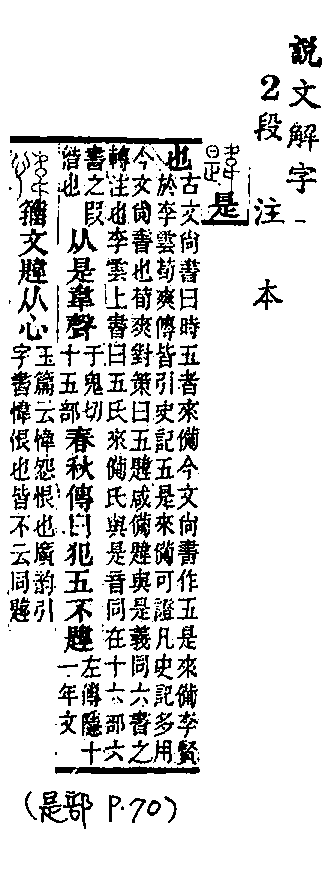 説文解字
2段注本
是
也
古文尚書曰時五者來備今文尚書作五是來備李賢
於李雲荀爽傳皆引史記五是來備可證凡史記多用
今文尚書也荀爽對策曰五韙咸備韙與是義同六書之
轉注也李雲上書曰五氏來備氏與是音同在十六部六
書之叚
借也
从是韋聲
于鬼切
十五部
春秋傳曰犯五不韙
左傳隱十
一年文
籒文韙从心
玉篇云愇怨恨也廣韵引
字書愇恨也皆不云同韙
(是部 P.70)